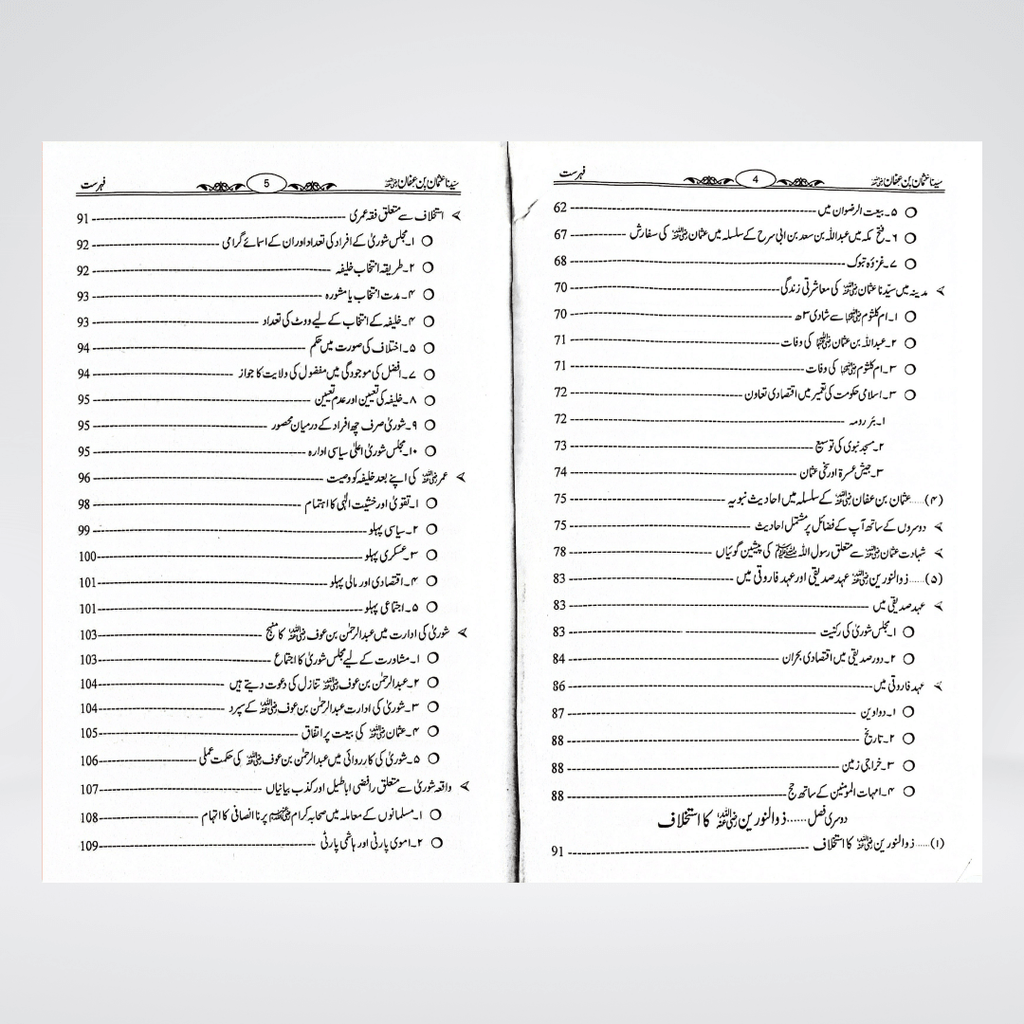 سیدنا عثمان بن عفان رضی اللہ عنہ 4 فہرست
○ ۵۔ بیعت الرضوان میں 62
○ ۶۔ فتح مکہ میں عبداللہ بن سعد بن ابی سرح کے سلسلہ میں عثمان رضی اللہ عنہ کی سفارش 67
○ ۷۔ غزوۂ تبوک 68
➤ مدینہ میں سیّدنا عثمان رضی اللہ عنہ کی معاشرتی زندگی 70
○ ۱۔ ام کلثوم رضی اللہ عنہا سے شادی ۳ھ 70
○ ۲۔ عبداللہ بن عثمان رضی اللہ عنہما کی وفات 71
○ ۳۔ ام کلثوم رضی اللہ عنہا کی وفات 71
○ ۳۔ اسلامی حکومت کی تعمیر میں اقتصادی تعاون 72
۱۔ بئر رومہ 72
۲۔ مسجد نبوی کی توسیع 73
۳۔ جیش عسرۃ اور سخی عثمان 74
(۴)..... عثمان بن عفان رضی اللہ عنہ کے سلسلہ میں احادیث نبویہ 75
➤ دوسروں کے ساتھ آپ کے فضائل پر مشتمل احادیث 75
➤ شہادت عثمان رضی اللہ عنہ سے متعلق رسول اللہ ﷺ کی پیشین گوئیاں 78
(۵)..... ذوالنورین رضی اللہ عنہ عہد صدیقی اور عہد فاروقی میں 83
➤ عہد صدیقی میں 83
○ ۱۔ مجلس شوریٰ کی رکنیت 83
○ ۲۔ دور صدیقی میں اقتصادی بحران 84
➤ عہد فاروقی میں 86
○ ۱۔ دواوین 87
○ ۲۔ تاریخ 88
○ ۳۔ خراجی زمین 88
○ ۴۔ امہات المؤمنین کے ساتھ حج 88
دوسری فصل...... ذوالنورین رضی اللہ عنہ کا استخلاف
(۱)..... ذوالنورین رضی اللہ عنہ کا استخلاف 91
سیّدنا عثمان بن عفان رضی اللہ عنہ 5 فہرست
➤ استخلاف سے متعلق فقہ عمری 91
○ ۱۔ مجلس شوریٰ کے افراد کی تعداد اور ان کے اسمائے گرامی 92
○ ۲۔ طریقہ انتخاب خلیفہ 92
○ ۳۔ مدت انتخاب یا مشورہ 93
○ ۴۔ خلیفہ کے انتخاب کے لیے ووٹ کی تعداد 93
○ ۵۔ اختلاف کی صورت میں حکم 94
○ ۷۔ افضل کی موجودگی میں مفضول کی ولایت کا جواز 94
○ ۸۔ خلیفہ کی تعیین اور عدم تعیین 95
○ ۹۔ شوریٰ صرف چھ افراد کے درمیان محصور 95
○ ۱۰۔ مجلس شوریٰ اعلیٰ سیاسی ادارہ 95
➤ عمر رضی اللہ عنہ کی اپنے بعد خلیفہ کو وصیت 96
○ ۱۔ تقویٰ اور خشیت الٰہی کا اہتمام 98
○ ۲۔ سیاسی پہلو 99
○ ۳۔ عسکری پہلو 100
○ ۴۔ اقتصادی اور مالی پہلو 101
○ ۵۔ اجتماعی پہلو 101
➤ شوریٰ کی ادارت میں عبدالرحمٰن بن عوف رضی اللہ عنہ کا منہج 103
○ ۱۔ مشاورت کے لیے مجلس شوریٰ کا اجتماع 103
○ ۲۔ عبدالرحمٰن بن عوف رضی اللہ عنہ تنازل کی دعوت دیتے ہیں 104
○ ۳۔ شوریٰ کی ادارت عبدالرحمٰن بن عوف رضی اللہ عنہ کے سپرد 104
○ ۴۔ عثمان رضی اللہ عنہ کی بیعت پر اتفاق 105
○ ۵۔ شوریٰ کی کارروائی میں عبدالرحمٰن بن عوف رضی اللہ عنہ کی حکمت عملی 106
➤ واقعہ شوریٰ سے متعلق رافضی اباطیل اور کذب بیانیاں 107
○ ۱۔ مسلمانوں کے معاملہ میں صحابہ کرام رضی اللہ عنہم پر نا انصافی کا اتہام 108
○ ۲۔ اموی پارٹی اور ہاشمی پارٹی 109